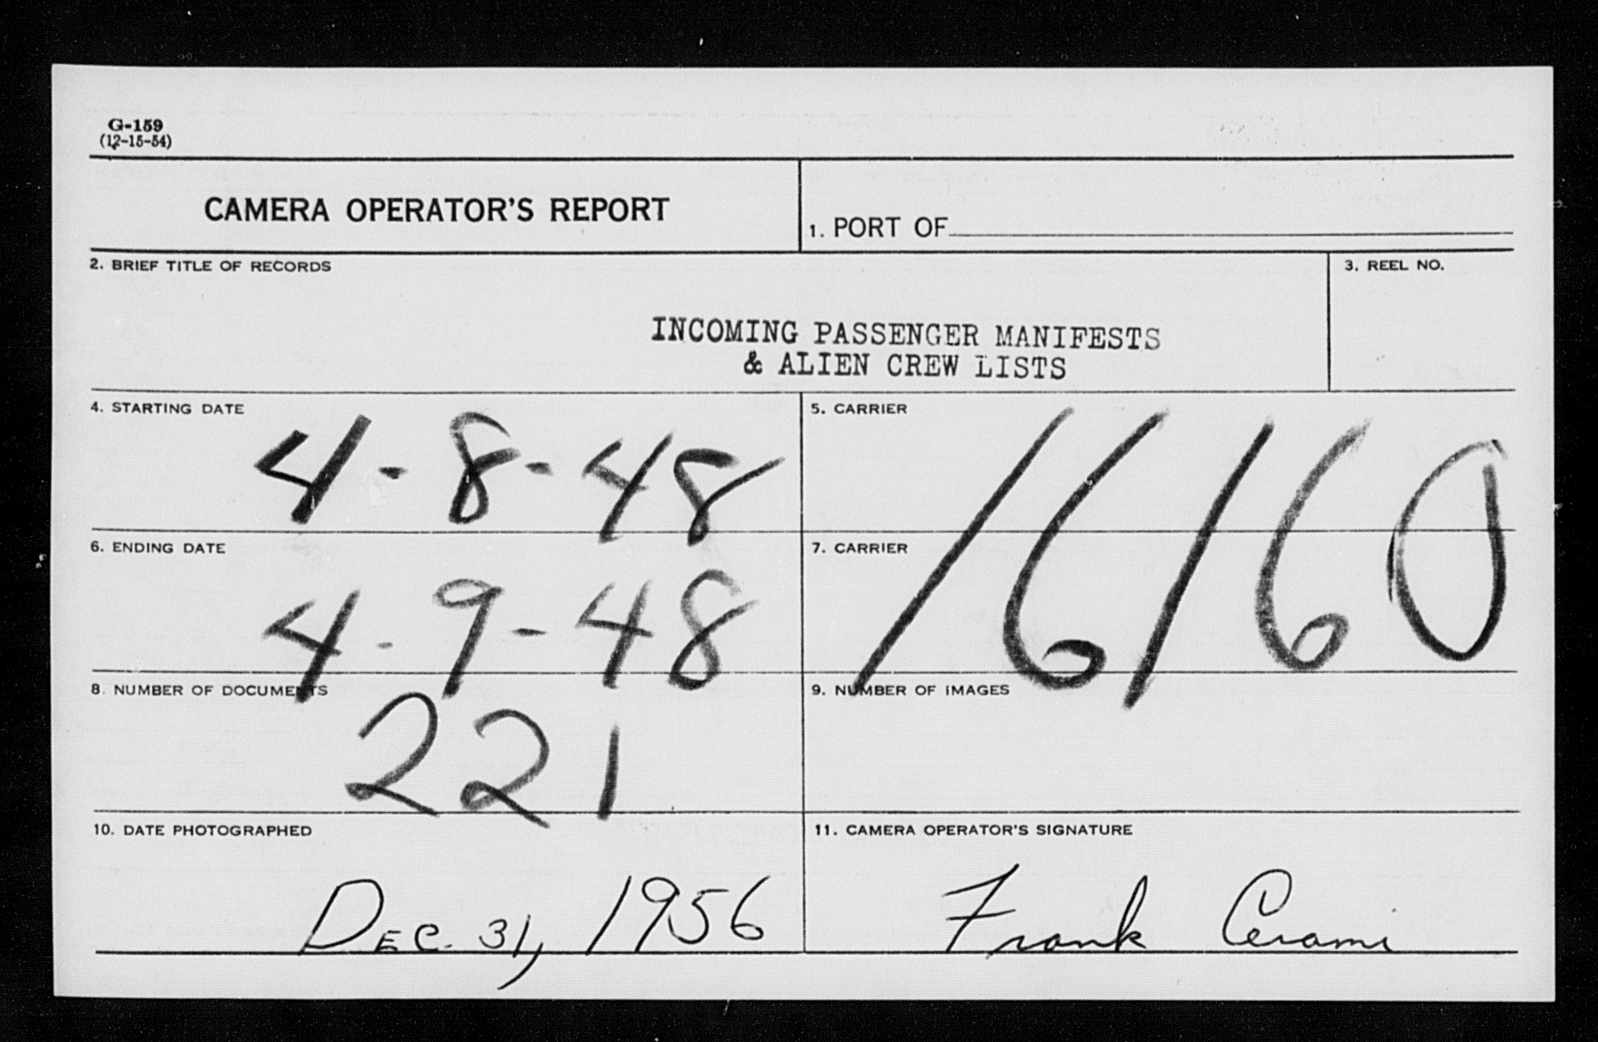 G-159
(12-15-54)
CAMERA OPERATOR'S REPORT
1. PORT OF
2. BRIEF TITLE OF RECORDS
3. REEL NO.
INCOMING PASSENGER MANIFESTS
& ALIEN CREW LISTS
4. STARTING DATE
4-8-48
5. CARRIER
16160
6. ENDING DATE
4-9-48
7. CARRIER
8. NUMBER OF DOCUMENTS
221
9. NUMBER OF IMAGES
10. DATE PHOTOGRAPHED
DEC. 31, 1956
11. CAMERA OPERATOR'S SIGNATURE
Frank Cerami